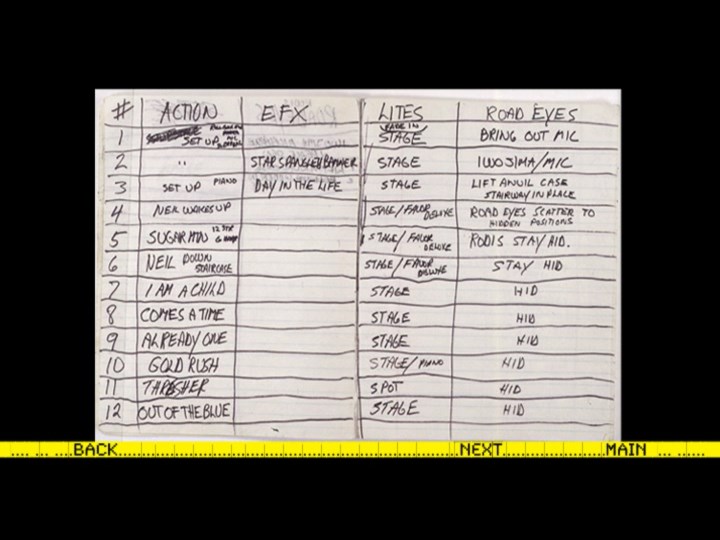 # ACTION EFX LITES ROAD EYES
1 SET UP FADE IN STAGE BRING OUT MIC
2 " STAR SPANGLED BANNER STAGE IWO JIMA/MIC
3 SET UP PIANO DAY IN THE LIFE STAGE LIFT ANVIL CASE
STAIRWAY IN PLACE
4 NEIL WAKES UP STAGE/FAVOR DELUXE ROAD EYES SCATTER TO
HIDDEN POSITIONS
5 SUGAR MTN 12 STR STAGE/FAVOR DELUXE RODIS STAY HID.
6 NEIL DOWN STAIRCASE STAGE/FAVOR DELUXE STAY HID
7 I AM A CHILD STAGE HID
8 COMES A TIME STAGE HID
9 ALREADY ONE STAGE HID
10 GOLD RUSH STAGE/PIANO HID
11 THRASHER SPOT HID
12 OUT OF THE BLUE STAGE HID
.... ... ....BACK....NEXT....MAIN ... ......